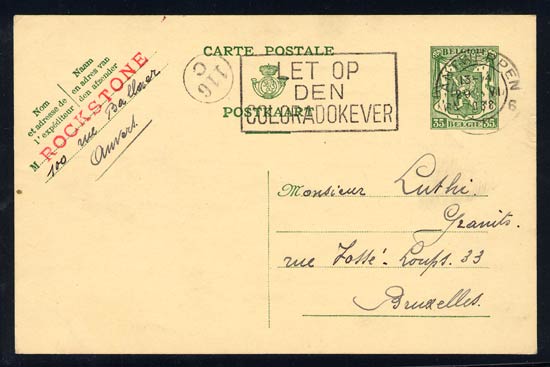 CARTE POSTALE
POSTKAART
Nom
et adresse de
l'expéditeur
Naam
en adres van
den afzender
M ROCKSTONE
100 rue
Anvers
116
C
LET OP
DEN
COLORADOKEVER
BELGIQUE
35 BELGIE 35
ANTWERPEN
6
Monsieur Luthi.
Granits.
rue Fossé-Loups. 33
Bruxelles.